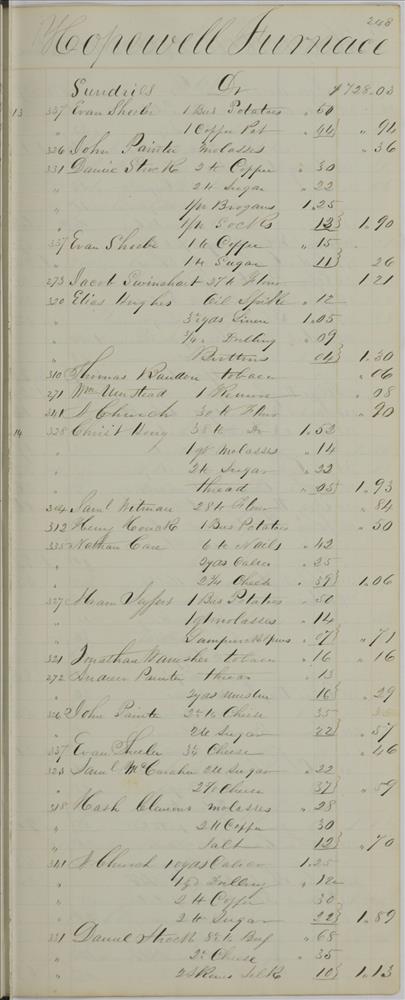 248
Hopewell Furnace
Sundries Dr $728.03
13 337 Evan Sheeler 1 Bus Potatoes " 50
" 1 Coffee Pot " 44} " 94
326 John Painter molasses " 36
331 Daniel Strock 2 lb Coffee " 30
" 2 lb Sugar " 22
" 1/pr Brogans 1.25
" 1/pr Socks 13} 1.90
337 Evan Sheeler 1 lb Coffee " 15
" 1 lb Sugar 11} " 26
273 Jacob Swinehart 27 lb Flour 1 21
320 Elias Hughes Oil " 12
" yds Linen 1.05
" 3/4 " Drilling " 09
" Buttons " 04} 1.30
310 Thomas tobacco " 06
271 Wm Umstead 1 " 08
341 N Church 30 lb Flour " 90
14 328 Christ King 38 lb Do 1.52
" 1 qt molasses " 14
" 2 lb Sugar " 22
" thread " 05} 1.93
304 Saml Witman 28 lb Flour " 84
312 Henry Houck 1 Bus Potatoes " 50
335 Nathan Care 6 lb Nails " 42
" 2 yds Calico " 25
" Cheese " 39} 1.06
327 Hiram 1 Bus Potatoes " 50
" 1 qt molasses " 14
" " 07} " 71
321 Jonathan Wamsher tobacco " 16 " 16
272 Andrew Painter thread " 13
" 2 yds muslin 16} " 29
326 John Painter lb Cheese 35
" 2 lb Sugar 22} " 57
337 Evan Sheeler Cheese " 46
323 Saml 2 lb Sugar " 22
" Cheese 37} " 59
318 Wash Clemens molasses " 28
" 2 lb Coffee 30
" Salt 12} " 70
341 N Church 10 yds Calico 1.25
" 1 yd Drilling " 12
" 2 lb Coffee 30
" 2 lb Sugar 22} 1.89
331 Daniel Strock lb Beef " 68
" Cheese " 35
" 2 Silk 10} 1.13